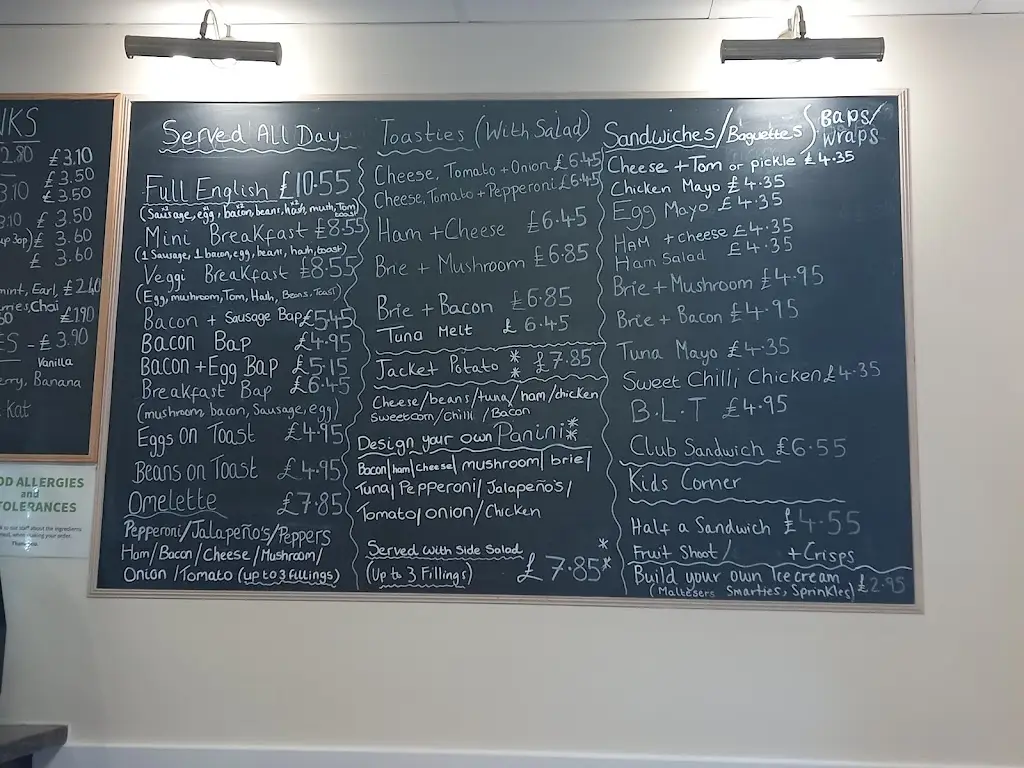 NKS
2.80 £3.10
£3.50
3.10 £3.50
3.10 £3.50
£ 3.60
£ 3.60
mint, Earl, £2.40
rries, Chai
£1.90
ES - £3.90
Vanilla
erry, Banana
Kat
OD ALLERGIES
and
TOLERANCES
Served All Day
Full English £10.55
(Sausage, egg, bacon, beans, hash, mush, Tom
toast)
Mini Breakfast £8.55
(1 Sausage, 1 bacon, egg, beans, hash, toast)
Veggi Breakfast £8.55
(Egg, mushroom, Tom, Hash, Beans, Toast)
Bacon + Sausage Bap £5.45
Bacon Bap £4.95
Bacon + Egg Bap £5.15
Breakfast Bap £6.45
(mushroom, bacon, Sausage, egg)
Eggs on Toast £4.95
Beans on Toast £4.95
Omelette £7.85
Pepperoni/Jalapeño's/Peppers
Ham/Bacon/Cheese/Mushroom/
Onion/Tomato (up to 3 fillings)
Toasties (With Salad)
Cheese, Tomato + Onion £6.45
Cheese, Tomato + Pepperoni £6.45
Ham + Cheese £6.45
Brie + Mushroom £6.85
Brie + Bacon £6.85
Tuna Melt £6.45
Jacket Potato ** £7.85
Cheese/beans/tuna/ham/chicken
Sweetcorn/chilli/Bacon
Design your own Panini **
Bacon|ham|cheese|mushroom|brie|
Tuna|Pepperoni/Jalapeño's/
Tomato/onion/Chicken
Served with side salad
(Up to 3 Fillings) £7.85 **
Sandwiches/Baguettes/Baps/
Wraps
Cheese + Tom or pickle £4.35
Chicken Mayo £4.35
Egg Mayo £4.35
Ham + cheese £4.35
Ham Salad £4.35
Brie + Mushroom £4.95
Brie + Bacon £4.95
Tuna Mayo £4.35
Sweet Chilli Chicken £4.35
B.L.T £4.95
Club Sandwich £6.55
Kids Corner
Half a Sandwich £4.55
Fruit Shoot/ + Crisps
Build your own Ice cream
(Maltesers Smarties, Sprinkles) £2.95